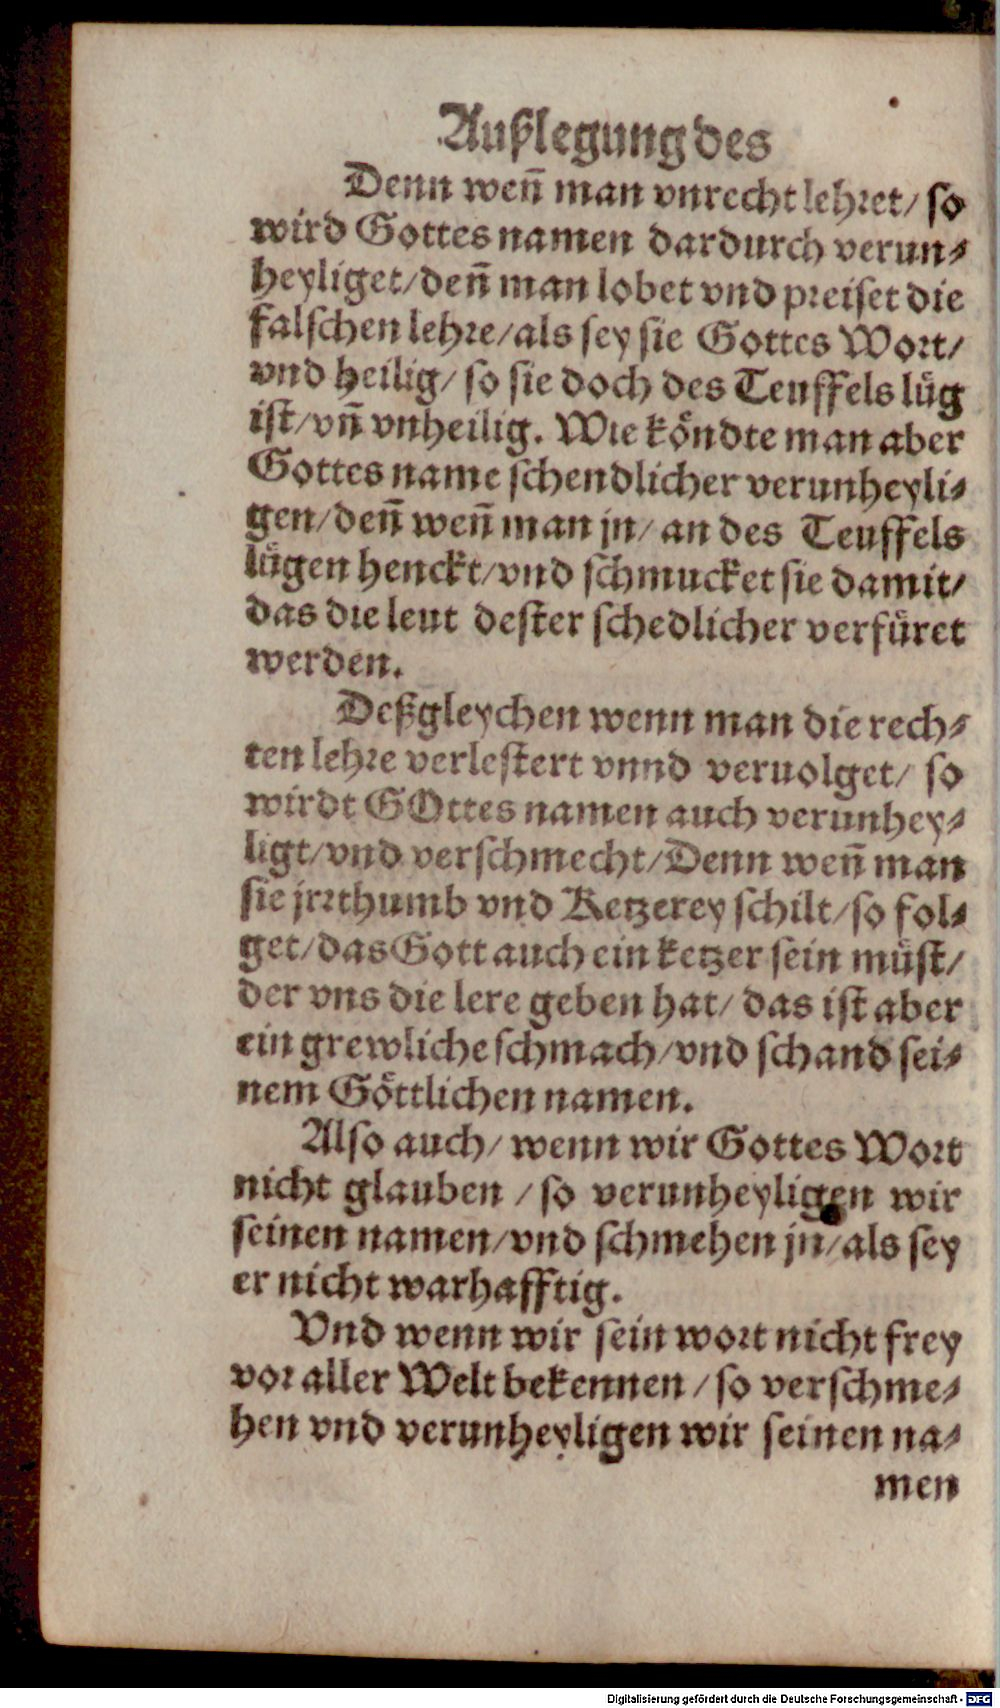 Außlegung des
Denn weñ man vnrecht lehret/ so
wird Gottes namen dardurch verun⸗
heyliget/deñ man lobet vnd preiset die
falschen lehre/als sey sie Gottes Wort/
vnd heilig/ so sie doch des Teuffels lüg
ist/vñ vnheilig. Wie köndte man aber
Gottes name schendlicher verunheyli⸗
gen/deñ weñ man jn/ an des Teuffels
lügen henckt/vnd schmucket sie damit/
das die leut dester schedlicher verfüret
werden.
Deßgleychen wenn man die rech⸗
ten lehre verlestert vnnd veruolget/ so
wirdt GOttes namen auch verunhey⸗
ligt/vnd verschmecht/Denn weñ man
sie jrrthumb vnd Ketzerey schilt/so fol⸗
get/das Gott auch ein ketzer sein müst/
der vns die lere geben hat/ das ist aber
ein grewliche schmach/vnd schand sei⸗
nem Göttlichen namen.
Also auch/ wenn wir Gottes Wort
nicht glauben / so verunheyligen wir
seinen namen/vnd schmehen jn/als sey
er nicht warhafftig.
Vnd wenn wir sein wort nicht frey
vor aller Welt bekennen / so verschme⸗
hen vnd verunheyligen wir seinen na⸗
men
Digitalisierung gefördert durch die Deutsche Forschungsgemeinschaft - DFG